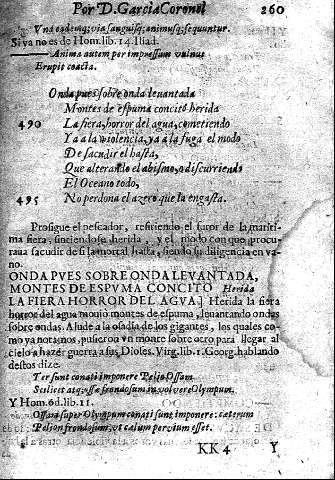 Por D. Garcia Coronel 260
Vna eademq; via sanguisq; animusq; sequuntur.
Si ya no es de Hom. lib. 14. Iliad.
Anima autem per impressum vulnus
Erupit coacta.
Onda pues sobre onda leuantada
Montes de espuma concitò herida
490 La fiera, horror del agua, cometiendo
Ya a la violencia, ya à la fuga el modo
De sacudir el hasta,
Que alterando el abismo, o discurriendo
El Oceano todo,
495 No perdona el azero que la engasta.
Prosigue el pescador, refiriendo el furor de la mariti-
ma fiera, sintiendose herida, y el modo con que procu-
raua sacudir de si la mortal hasta, siendo su diligencia en va-
no.
ONDA PVES SOBRE ONDA LEVANTADA,
MONTES DE ESPVMA CONCITÒ Herida
LA FIERA HORROR DEL AGVA.] Herida la fiera
horror del agua mouiò montes de espuma, leuantando ondas
sobre ondas. Alude a la osadia de los gigantes, los quales co-
mo ya notamos, pusieron vn monte sobre otro para llegar al
cielo a hazer guerra a sus Dioses. Virg. lib. 1. Georg. hablando
destos dize.
Ter sunt conati imponere Pelio Ossam
Scilicet atq; Ossæ frondosum inuoluere Olympum.
Y Hom. Od. lib. 11.
Ossam super Olympum conati sunt imponere: cæterum
Pelion frondosum, vt cælum peruium esset.
KK 4 Y